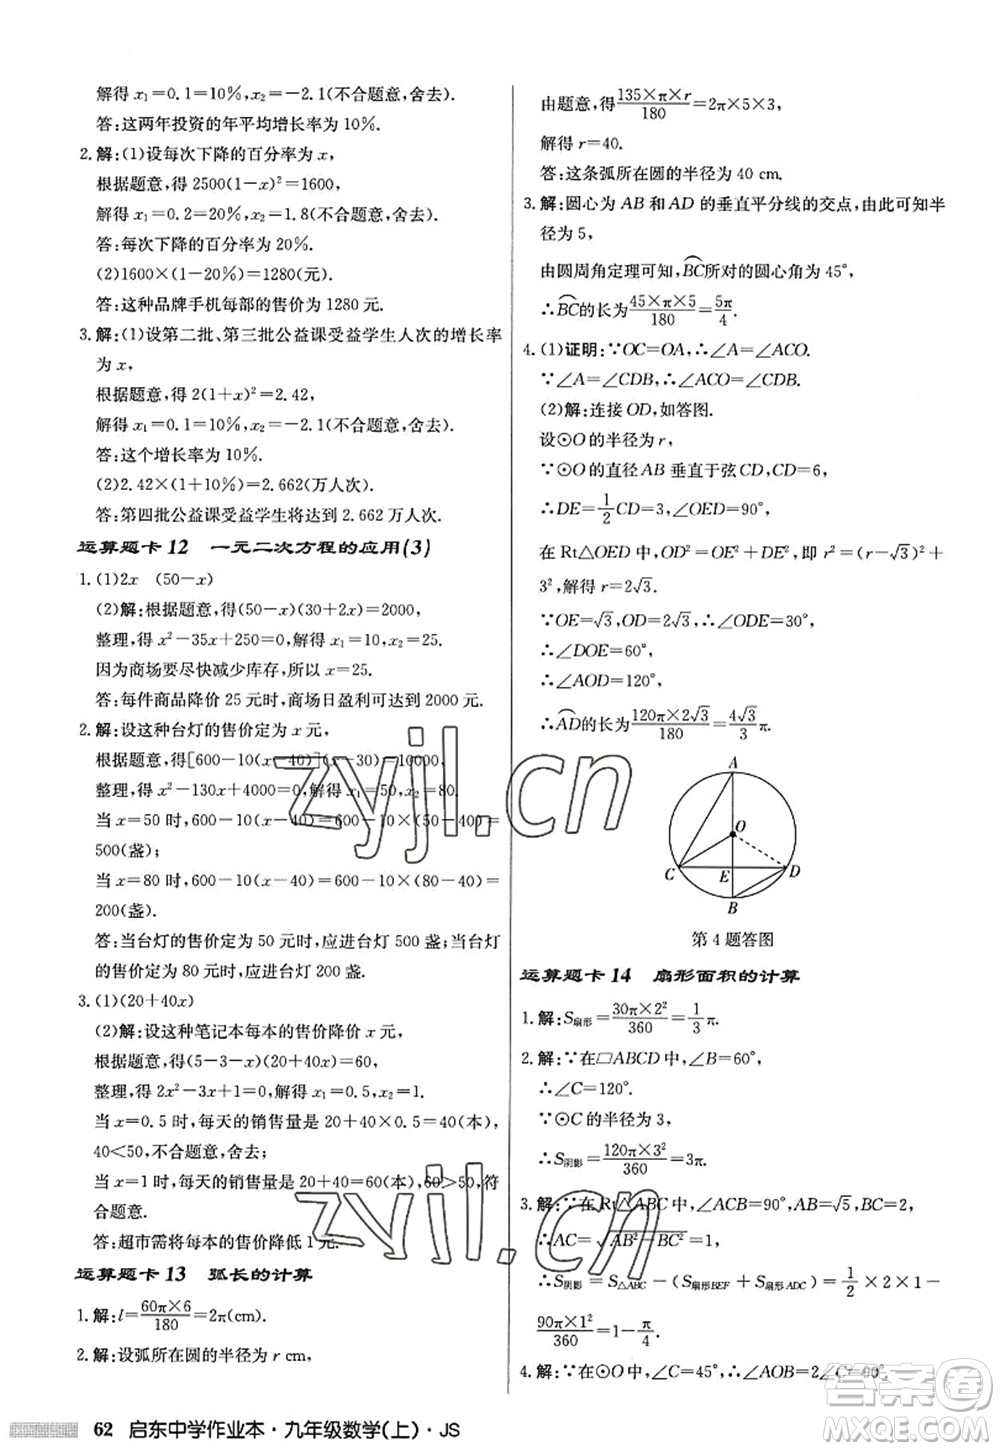 解得 x₁=0.1=10%,x₂=-2.1(不合题意,舍去).
答:这两年投资的年平均增长率为 10%.
2.解:(1)设每次下降的百分率为 x,
根据题意,得 2500(1-x)²=1600,
解得 x₁=0.2=20%,x₂=1.8(不合题意,舍去).
答:每次下降的百分率为 20%.
(2)1600×(1-20%)=1280(元).
答:这种品牌手机每部的售价为 1280 元.
3.解:(1)设第二批、第三批公益课受益学生人次的增长率
为 x,
根据题意,得 2(1+x)²=2.42,
解得 x₁=0.1=10%,x₂=-2.1(不合题意,舍去).
答:这个增长率为 10%.
(2)2.42×(1+10%)=2.662(万人次).
答:第四批公益课受益学生将达到 2.662 万人次.
运算题卡 12 一元二次方程的应用(3)
1.(1)2x (50-x)
(2)解:根据题意,得(50-x)(30+2x)=2000,
整理,得 x²-35x+250=0,解得 x₁=10,x₂=25.
因为商场要尽快减少库存,所以 x=25.
答:每件商品降价 25 元时,商场日盈利可达到 2000 元.
2.解:设这种台灯的售价定为 x 元,
根据题意,得[600-10(x-40)](x-30)=10000,
整理,得 x²-130x+4000=0,解得 x₁=50,x₂=80.
当 x=50 时,600-10(x-40)=600-10×(50-40)=
500(盏);
当 x=80 时,600-10(x-40)=600-10×(80-40)=
200(盏).
答:当台灯的售价定为 50 元时,应进台灯 500 盏;当台灯
的售价定为 80 元时,应进台灯 200 盏.
3.(1)(20+40x)
(2)解:设这种笔记本每本的售价降价 x 元,
根据题意,得(5-3-x)(20+40x)=60,
整理,得 2x²-3x+1=0,解得 x₁=0.5,x₂=1.
当 x=0.5 时,每天的销售量是 20+40×0.5=40(本),
40<50,不合题意,舍去;
当 x=1 时,每天的销售量是 20+40=60(本),60>50,符
合题意.
答:超市需将每本的售价降低 1 元.
运算题卡 13 弧长的计算
1.解:l=60π×6/180=2π(cm).
2.解:设弧所在圆的半径为 r cm,
由题意,得135×π×r/180=2π×5×3,
解得 r=40.
答:这条弧所在圆的半径为 40 cm.
3.解:圆心为 AB 和 AD 的垂直平分线的交点,由此可知半
径为 5,
由圆周角定理可知,⌒BC所对的圆心角为 45°,
∴⌒BC的长为45×π×5/180=5π/4.
4.(1)证明:∵OC=OA,∴∠A=∠ACO.
∵∠A=∠CDB,∴∠ACO=∠CDB.
(2)解:连接 OD,如答图.
设⊙O 的半径为 r,
∵⊙O 的直径 AB 垂直于弦CD,CD=6,
∴DE=1/2CD=3,∠OED=90°,
在 Rt△OED 中,OD²=OE²+DE²,即 r²=(r-√3)²+
3²,解得 r=2√3.
∵OE=√3,OD=2√3,∴∠ODE=30°,
∴∠DOE=60°,
∴∠AOD=120°,
∴⌒AD的长为120π×2√3/180=4√3/3π.
A
O
C E D
B
第 4 题答图
运算题卡 14 扇形面积的计算
1.解:S扇形=30π×2²/360=1/3π.
2.解:∵在▱ABCD 中,∠B=60°,
∴∠C=120°.
∵⊙C 的半径为 3,
∴S阴影=120π×3²/360=3π.
3.解:∵在 Rt△ABC 中,∠ACB=90°,AB=√5,BC=2,
∴AC=√(AB²-BC²)=1,
∴S阴影=S△ABC-(S扇形BEF+S扇形ADC)=1/2×2×1-
90π×1²/360=1-π/4.
4.解:∵在⊙O 中,∠C=45°,∴∠AOB=2∠C=90°.
62 启东中学作业本·九年级数学(上)·JS
zyjl.cn
zyjl.cn
答案圈
MXQE.COM